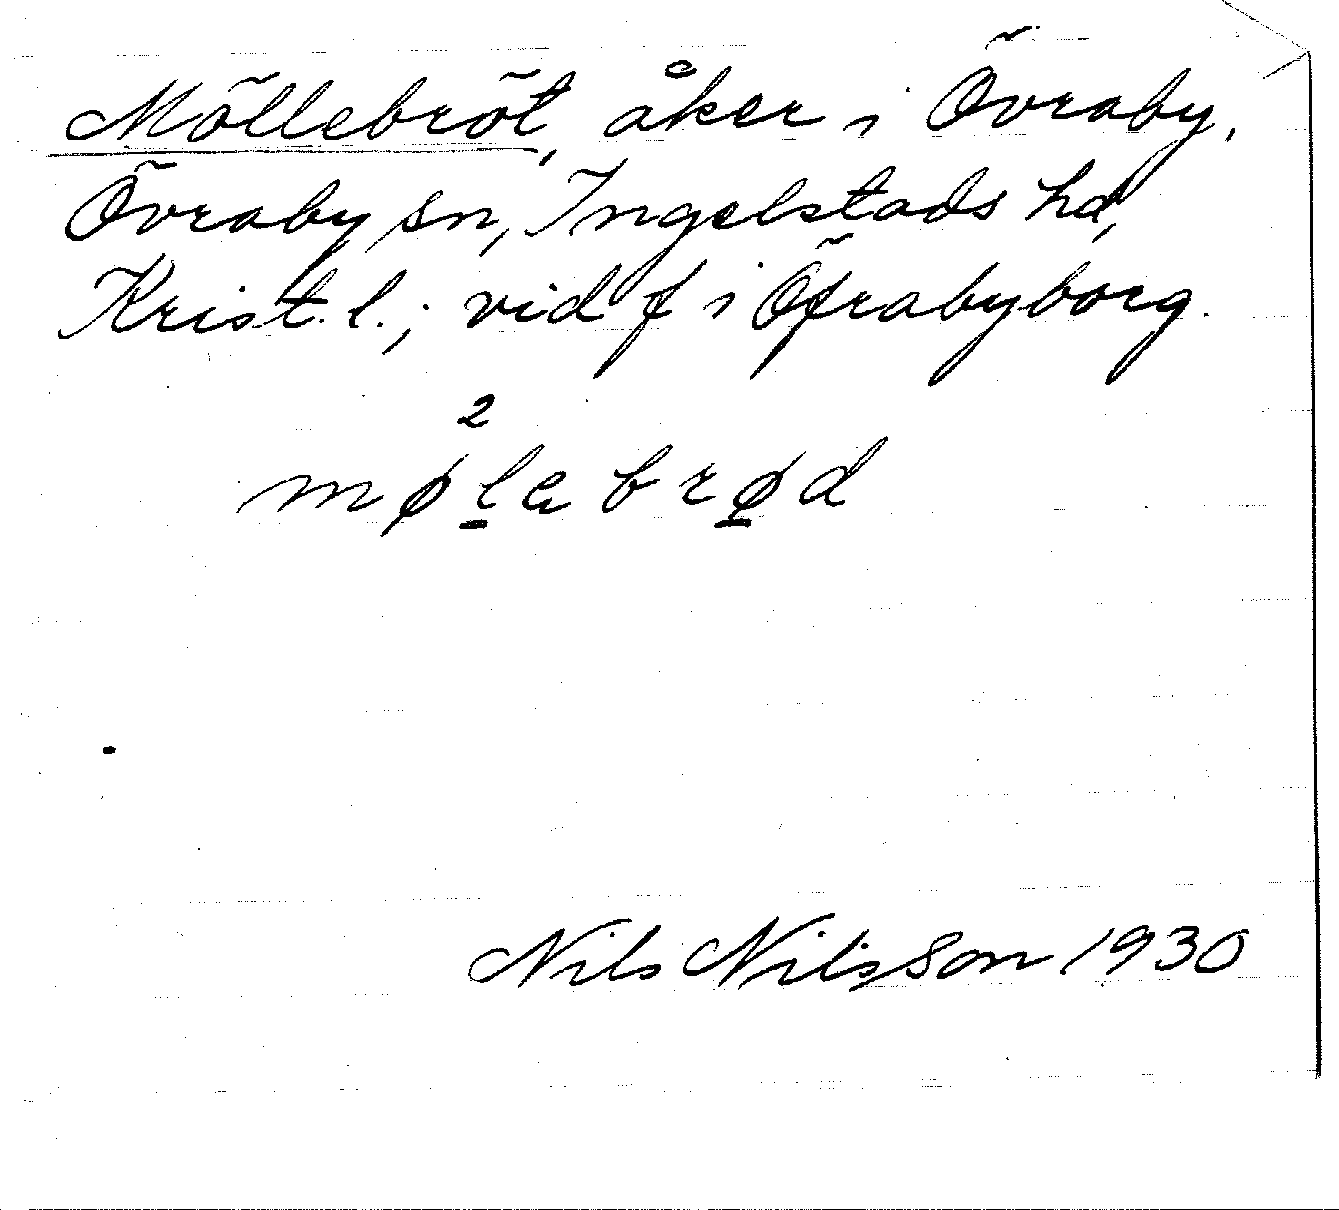 Möllebröt, åker i Övraby,
Övraby sn, Ingelstads hd,
Krist. l.; vid f i Öfrabyborg.
2
møle brød
Nils Nilsson 1930